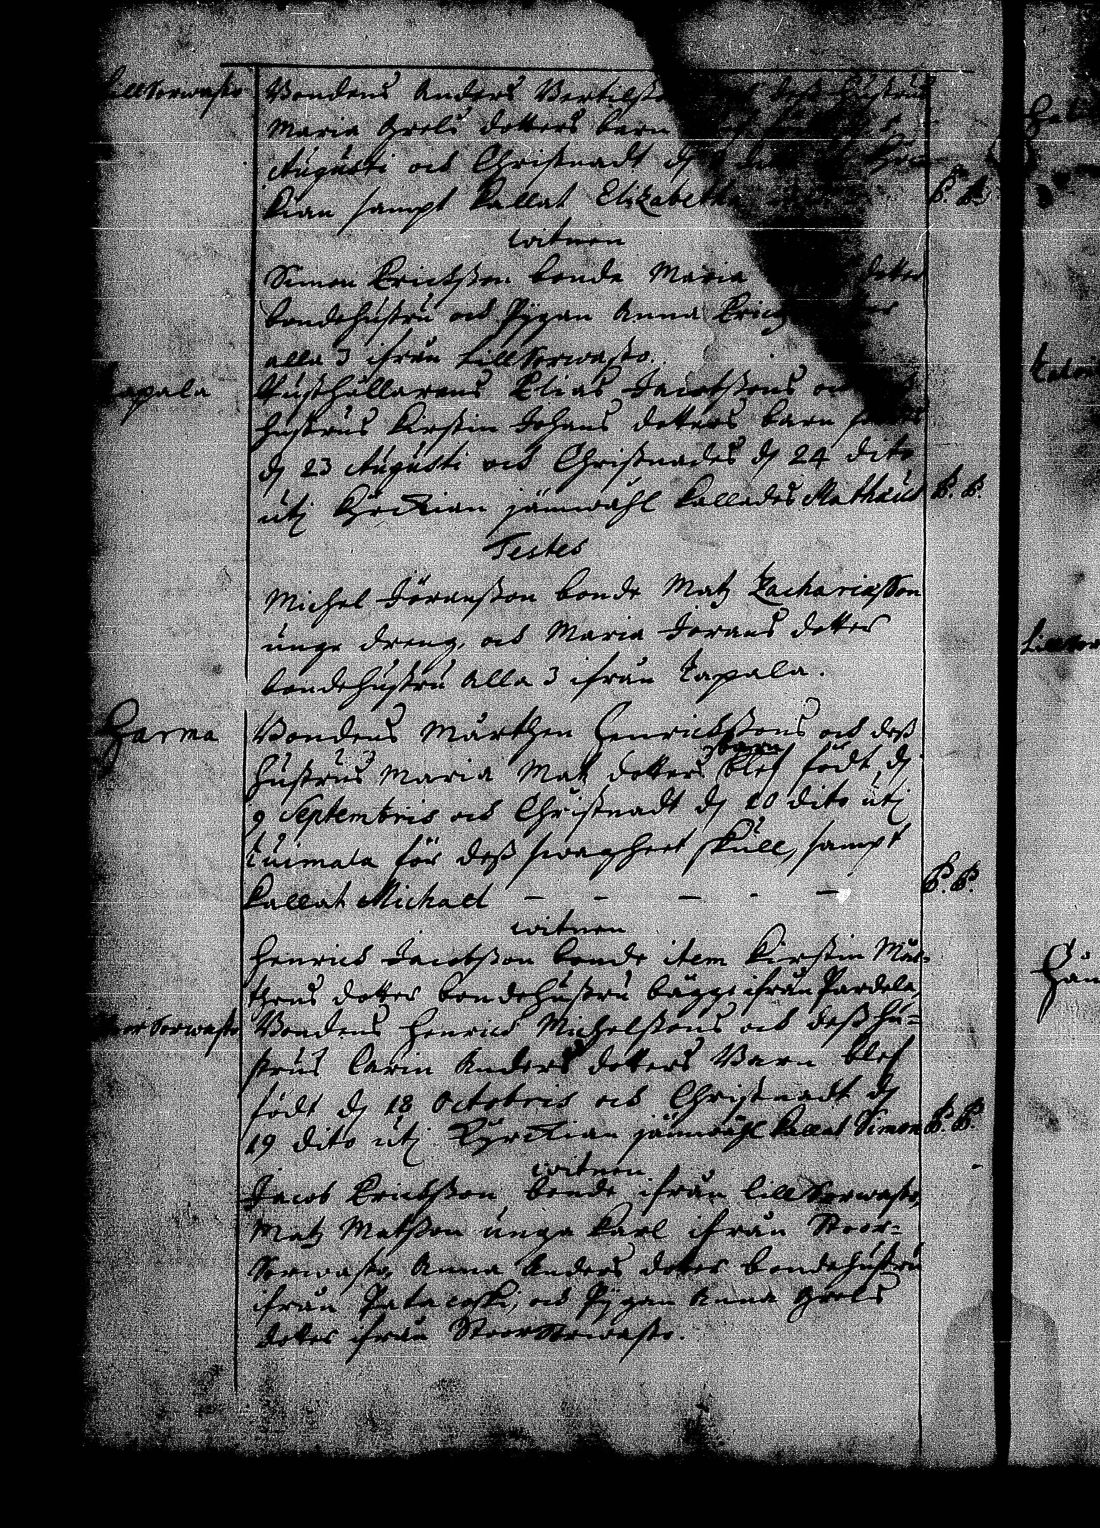 Lill Sorwasto
Bondens Anders Bertilsso deß hustrus
Maria Grels dotters barn
Augusti och Christnadt dj
kian sampt kallat Elizabetha
P. B.
witnen
Simon Erichsson bonde Maria dotter
bondehustru och Pÿgan Anna Erich
alla 3 ifrån Lill Sorwasto.
apala
Rusthållarens Elias Jacobssons och
hustrus Kirstin Johans dotters barn
dj 23 Augusti och Christnades dj 24 dito
utj Kyrckian jämwähl kallades Mathäus
P. B.
Testes
Michel Jöransson bonde Matz Zachariasson
unge dreng, och Maria Jörans dotter
bondehustru alla 3 ifrån Tapala.
Harma
Bondens Mårthen Henrichssons och deß
hustrus Maria Matz dotters barn blef födt dj
9 Septembris och Christnadt dj 10 dito utj
Tuimala för deß swagheet skull, sampt
kallat Michael - - - - -
P. B.
witnen
Henrich Jacobsson bonde item Kirstin Mår-
thens dotter bondehustru bägge ifrån Pardela,
oor Sorwasto
Bondens Henrich Michelssons och deß hu-
strus Carin Anders dotters Barn blef
födt dj 18 Octobris och Christnadt dj
19 dito utj Kyrckian jämwähl kallat Simon
P. B.
witnen
Jacob Erichsson bonde ifrån Lill Sorwasto,
Matz Matsson unge karl ifrån Stoor-
Sorwasto, Anna Anders dotter bondehustru
ifrån Patacoski, och Pÿgan Anna Grels
dotter ifrån Stoor Sorwasto.